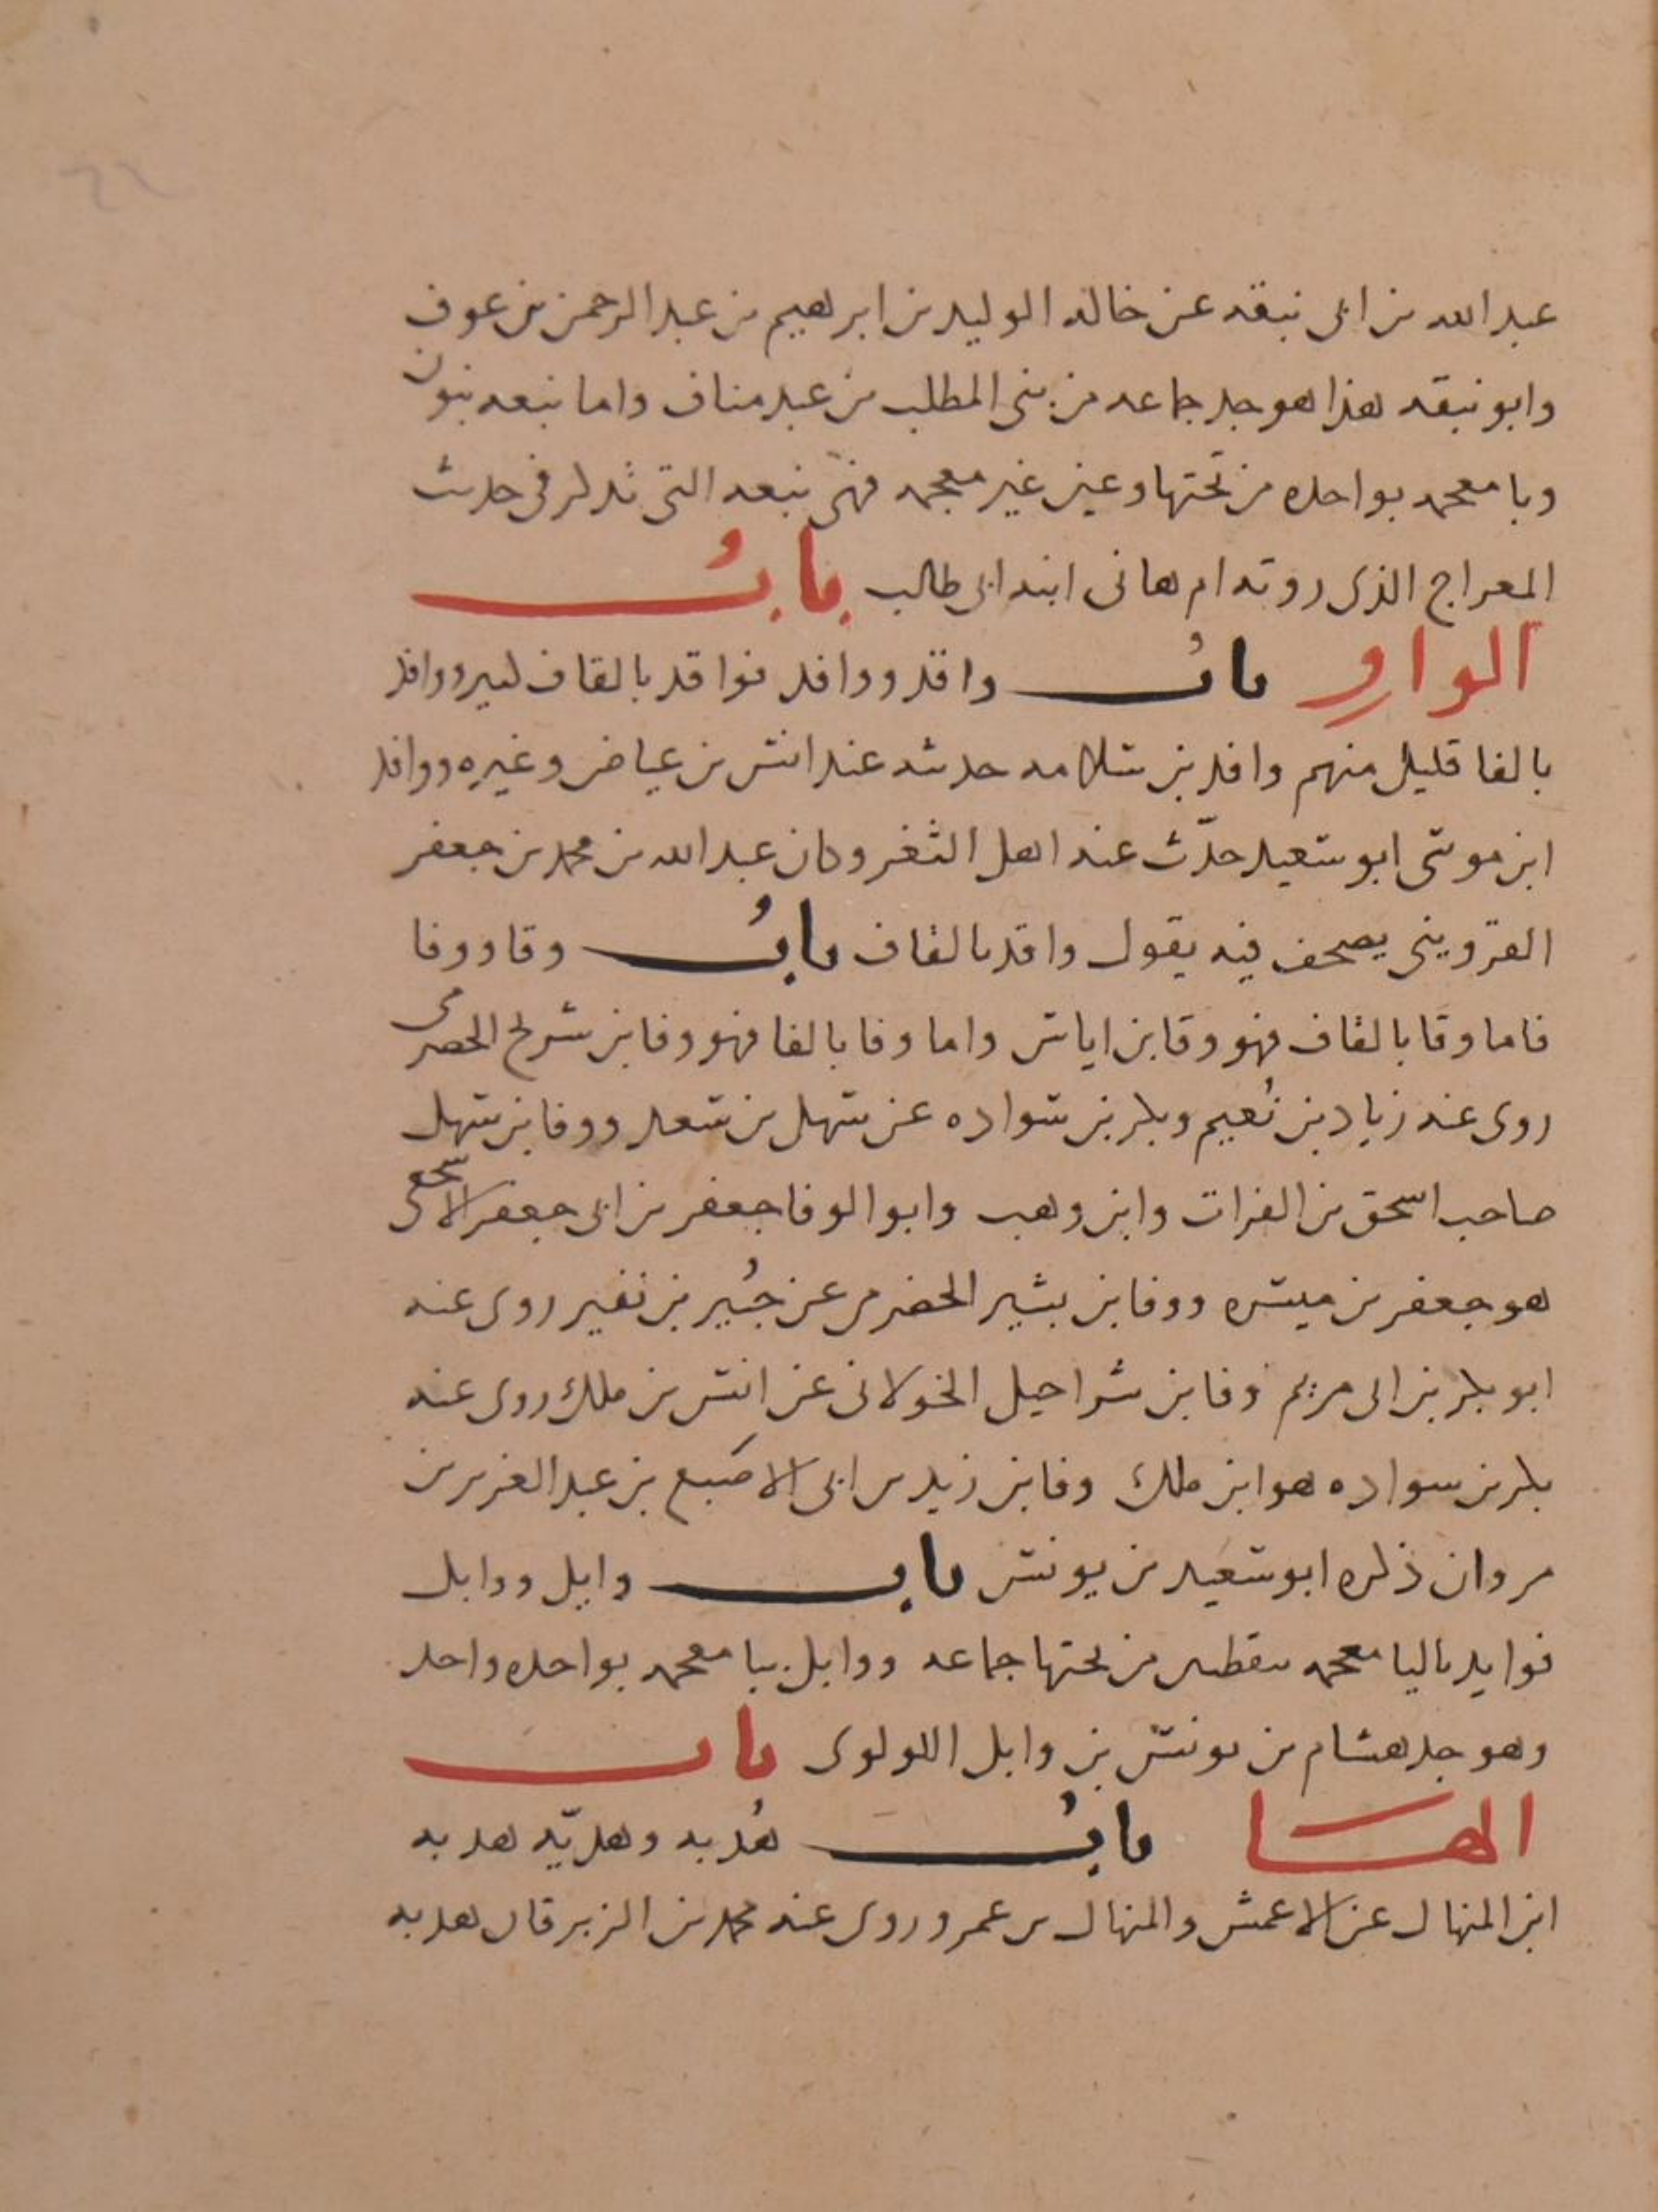 ٦٦
عبد الله بن ابى نبقه عن خاله الوليد بن ابرهيم بن عبد الرحمن بن عوف
وابو نبقه هذا هو جد جماعه من بنى المطلب بن عبد مناف واما نبعه بنون
وبا معجمه بواحده من تحتها وعين غير معجمه فهى نبعه التى تذكر فى حديث
المعراج الذى روته ام هانى ابنه ابى طالب بابُ
الواو بابُ واقد ووافد فواقد بالقاف كبير ووافد
بالفا قليل منهم وافد بن سلامه حدث عنه انس بن عياض وغيره ووافد
ابن موسى ابو سعيد حدّث عنه اهل الثغر وكان عبد الله بن محمد بن جعفر
القزوينى يصحف فيه يقول واقد بالقاف بابُ وقا ووفا
فاما وقا بالقاف فهو وقا بن اياس واما وفا بالفا فهو وفا بن شريح الحضرمى
روى عنه زياد بن نُعيم وبكر بن سواده عن سهل بن سعد ووفا بن سهل
صاحب اسحق بن الفرات وابن وهب وابو الوفا جعفر بن ابى جعفر الاشجعى
هو جعفر بن ميسره ووفا بن بشير الحضرمى عن جُبير بن نفير روى عنه
ابو بكر بن ابى مريم وفا بن شراحيل الخولانى عن انس بن ملك روى عنه
بكر بن سواده هو ابن ملك وفا بن زيد بن ابى الاصَبع بن عبد العزيز بن
مروان ذكره ابو سعيد بن يونس باب وايل ووابل
فوايد باليا معجمه بنقطتين من تحتها جماعه ووابل ببا معجمه بواحده واحد
وهو جد هشام بن يونس بن وابل اللولوى باب
الهــا بابُ هُدبه وهديّه هدبه
ابن المنهال عن الاعمش والمنهال بن عمرو روى عنه محمد بن الزبرقان هدبه